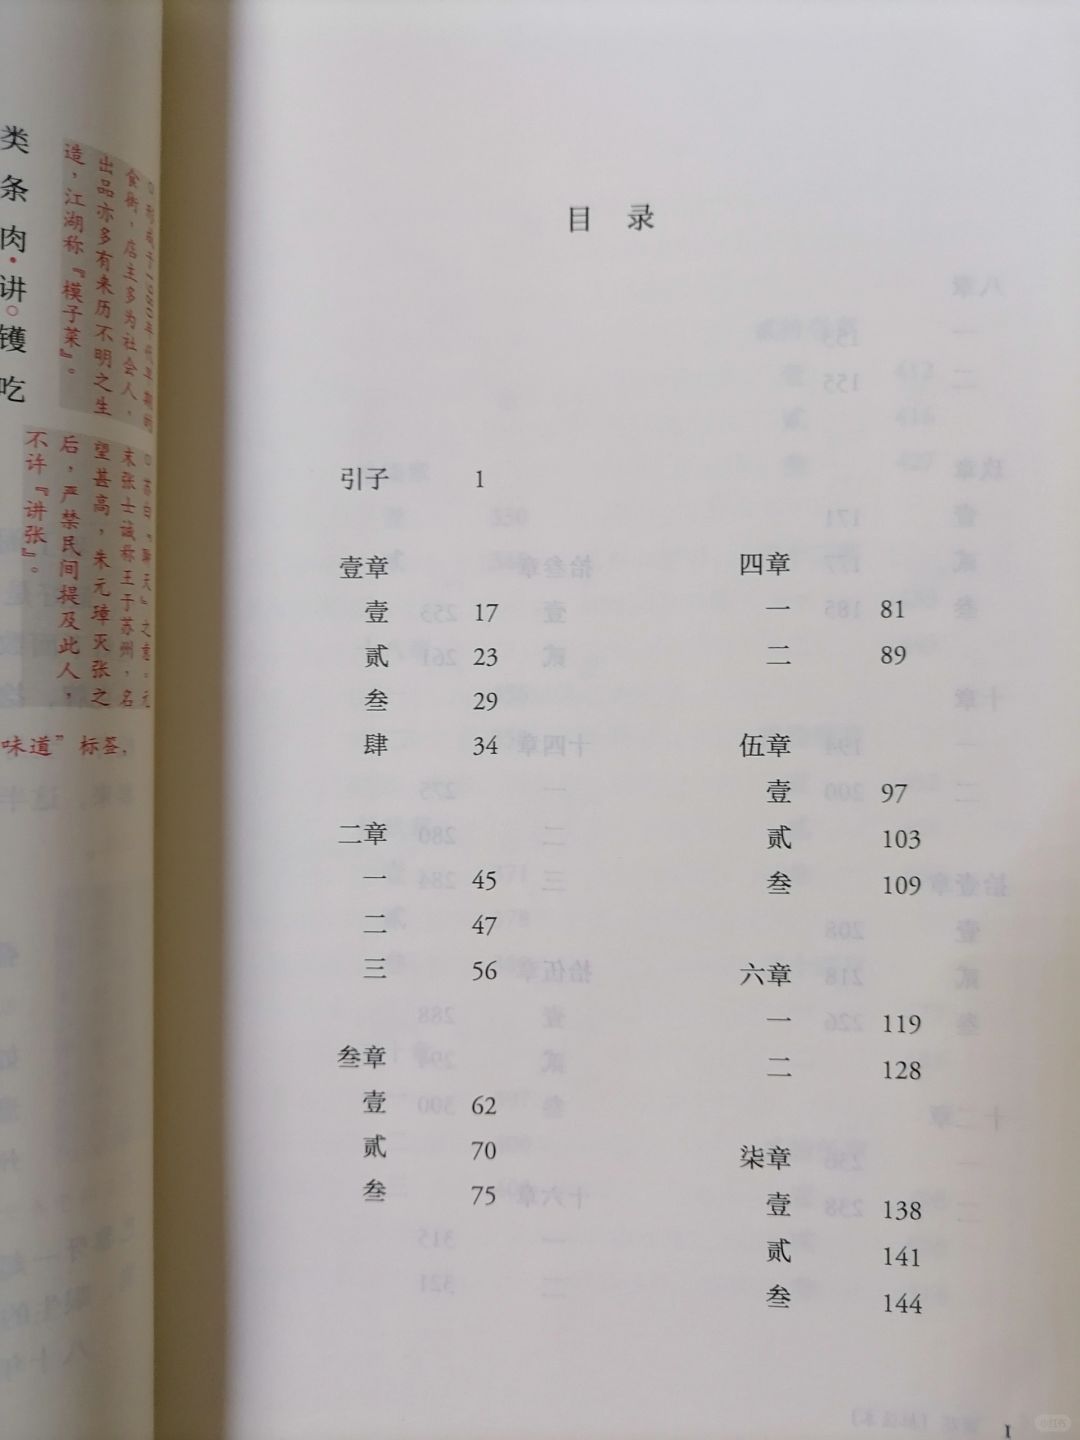 目 录
引子 1
壹章
壹 17
贰 23
叁 29
肆 34
二章
一 45
二 47
三 56
叁章
壹 62
贰 70
叁 75
四章
一 81
二 89
伍章
壹 97
贰 103
叁 109
六章
一 119
二 128
柒章
壹 138
贰 141
叁 144
I
类条肉·讲○镬吃
食街，店主多为社会人，
出品亦多有来历不明之生
造，江湖称『模子菜』。
末张士诚称王于苏州，名
望甚高，朱元璋灭张之
后，严禁民间提及此人，
不许『讲张』。
味道”标签，
小红书